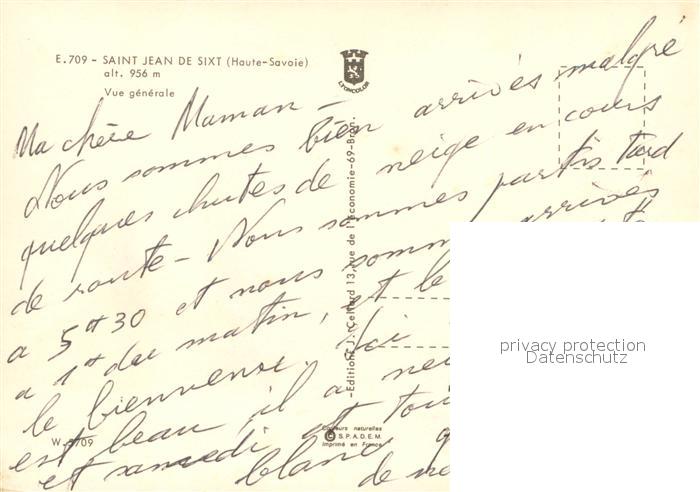 E.709 - SAINT JEAN DE SIXT (Haute-Savoie)
alt. 956 m
Vue générale
LYONCOLOR
Ma chère Maman -
Nous sommes bien arrivés malgré
quelques chutes de neige en cours
de route - Nous sommes partis tard
a 5H30 et nous somm arrivés
a 1H du matin, et le
le bienvenue. Ici
est beau, il a nei
et samedi et tou
blanc
de
-Editions J. Cellard 13, rue de l'économie-69-Bron.
W.5709
Couleurs naturelles
© S.P.A.D.E.M.
Imprimé en France
privacy protection
Datenschutz